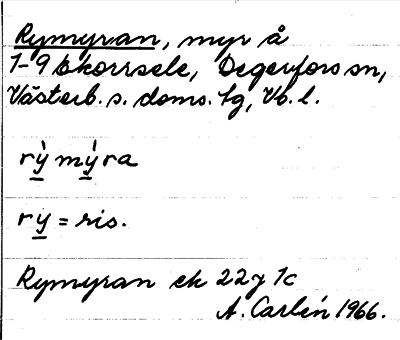 Rymyran, myr å
1-9 Ekorrsele, Degerfors sn,
Västerb. s. doms. lg, Vb. l.
rý mýra
ry = ris.
Rymyran ek 22 J 1c
A. Carlén 1966.